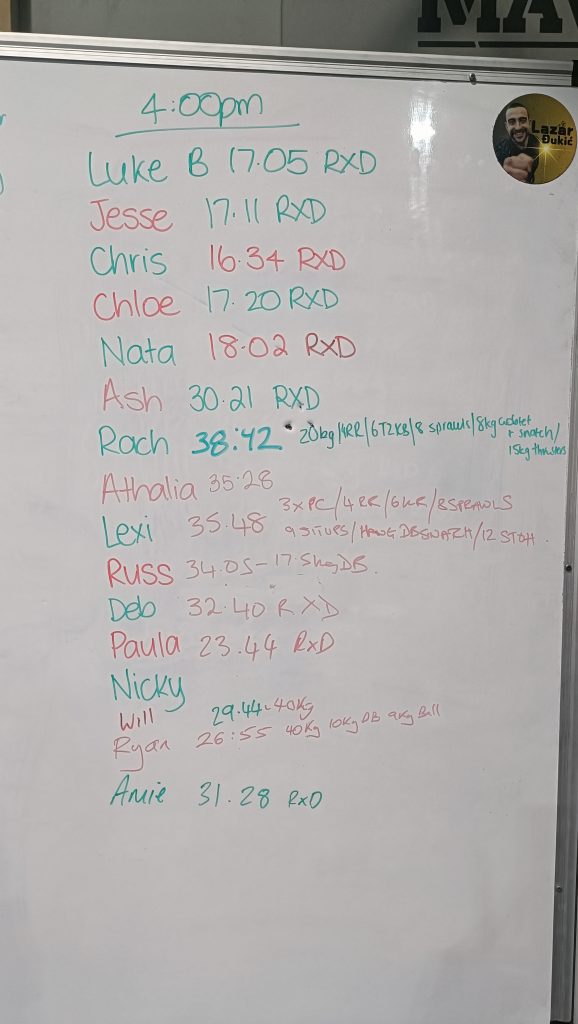 MAV
4:00pm
Lazar
Đukić
Luke B 17.05 RXD
Jesse 17.11 RXD
Chris 16.34 RXD
Chloe 17.20 RXD
Nata 18.02 RXD
Ash 30.21 RXD
Rach 38:42 20kg/4RR/6T2KB/8 sprawls/8kg
+ snatch/
15kg thrusters
Athalia 35:28
3xPC/4RR/6KR/8SPRAWLS
Lexi 35.48 9 SITUPS/HANG DB SNATCH/12 STOH.
Russ 34.05-17.5kg DB.
Deb 32.40 RXD
Paula 23.44 RXD
Nicky
Will 29.44-40kg
Ryan 26:55 40kg 10kg DB 9kg Ball
Amie 31.28 RXD